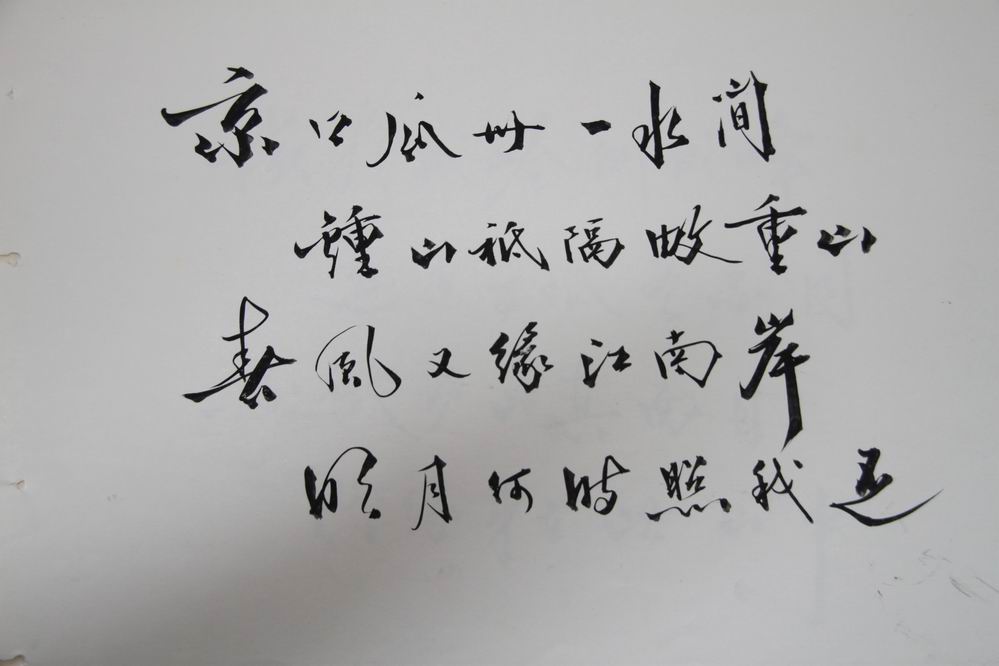 京口瓜州一水间
鐘山祗隔数重山
春风又缘江南岸
明月何时照我还